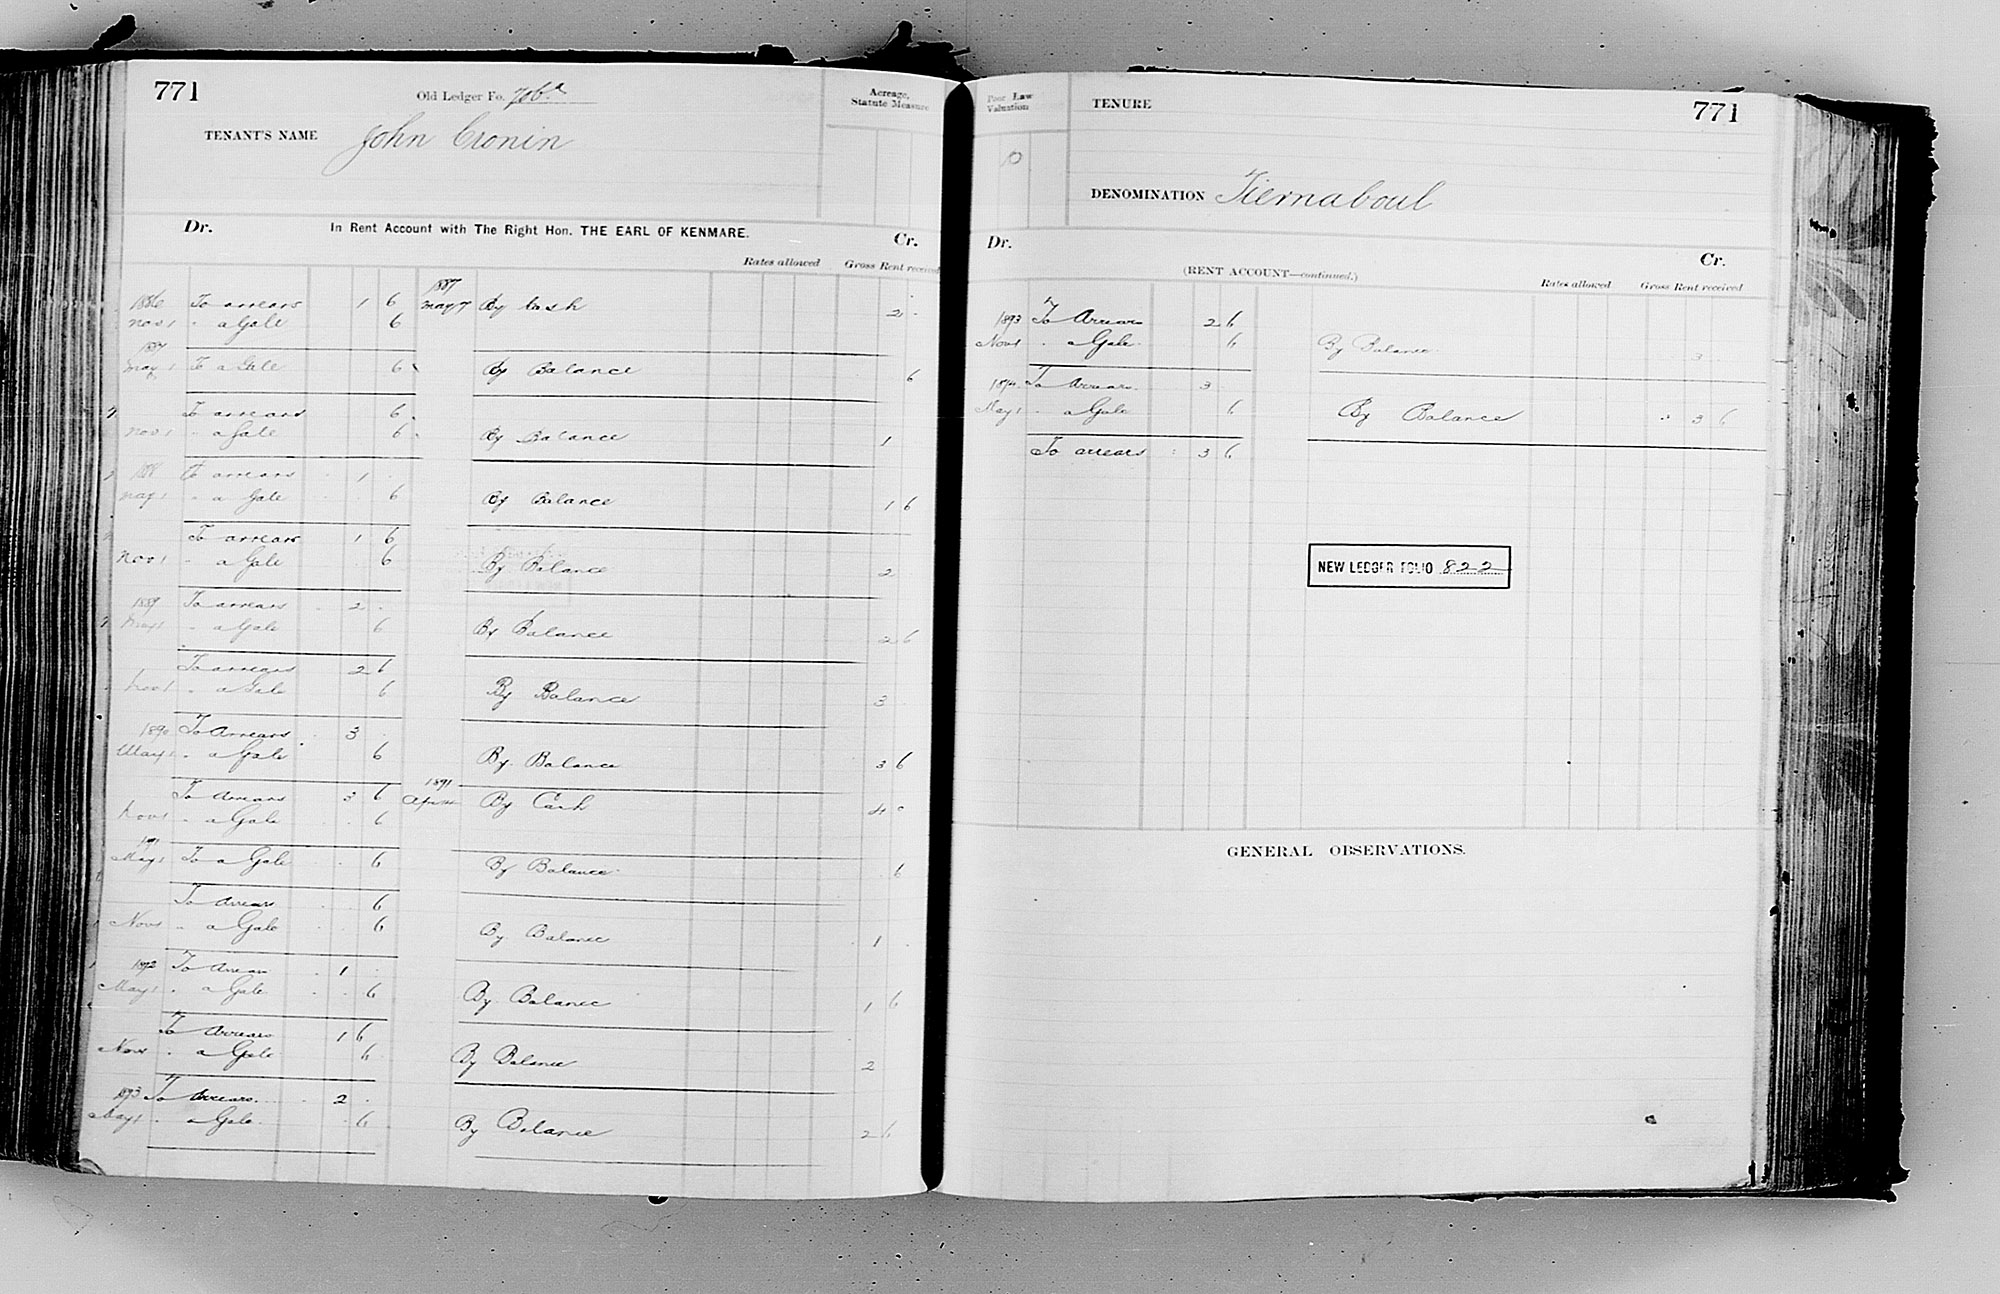 771
Old Ledger Fo. 706a
TENANT'S NAME John Cronin
Acreage, Statute Measure
Dr. In Rent Account with The Right Hon. THE EARL OF KENMARE. Cr.
Rates allowed Gross Rent received
1886 To arrears 1 6 1887 May 7 By Cash 2 -
Nov 1 " a Gale 6
1887
May 1 To a Gale 6 By Balance 6
To arrears 6
Nov 1 " a Gale 6 By Balance 1
1888 To arrears 1
May 1 " a Gale 6 By Balance 1 6
To arrears 1 6
Nov 1 " a Gale 6 By Balance 2
1889 To arrears 2
May 1 " a Gale 6 By Balance 2 6
To arrears 2 6
Nov 1 " a Gale 6 By Balance 3
1890 To Arrears 3
May 1 " a Gale 6 By Balance 3 6
To Arrears 3 6 1891 By Cash 4
Nov 1 " a Gale 6
1891
May 1 To a Gale 6 By Balance 6
To Arrears 6
Nov 1 " a Gale 6 By Balance 1
1892 To Arrears 1
May 1 " a Gale 6 By Balance 1 6
To Arrears 1 6
Nov " a Gale 6 By Balance 2
1893 To Arrears 2
May 1 " a Gale 6 By Balance 2 6
Poor Law Valuation
TENURE
771
DENOMINATION Tiernaboul
Dr. Cr.
(RENT ACCOUNT—continued.)
Rates allowed Gross Rent received
1893 To Arrears 2 6
Nov 1 " a Gale 6 By Balance 3
1894 To Arrears 3
May 1 " a Gale 6 By Balance 3 6
To arrears 3 6
NEW LEDGER FOLIO 822
GENERAL OBSERVATIONS.